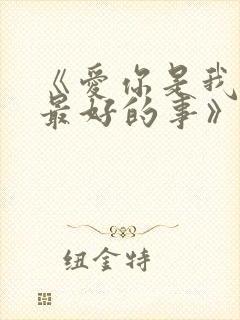 《爱你是我
最好的事》
纽金特